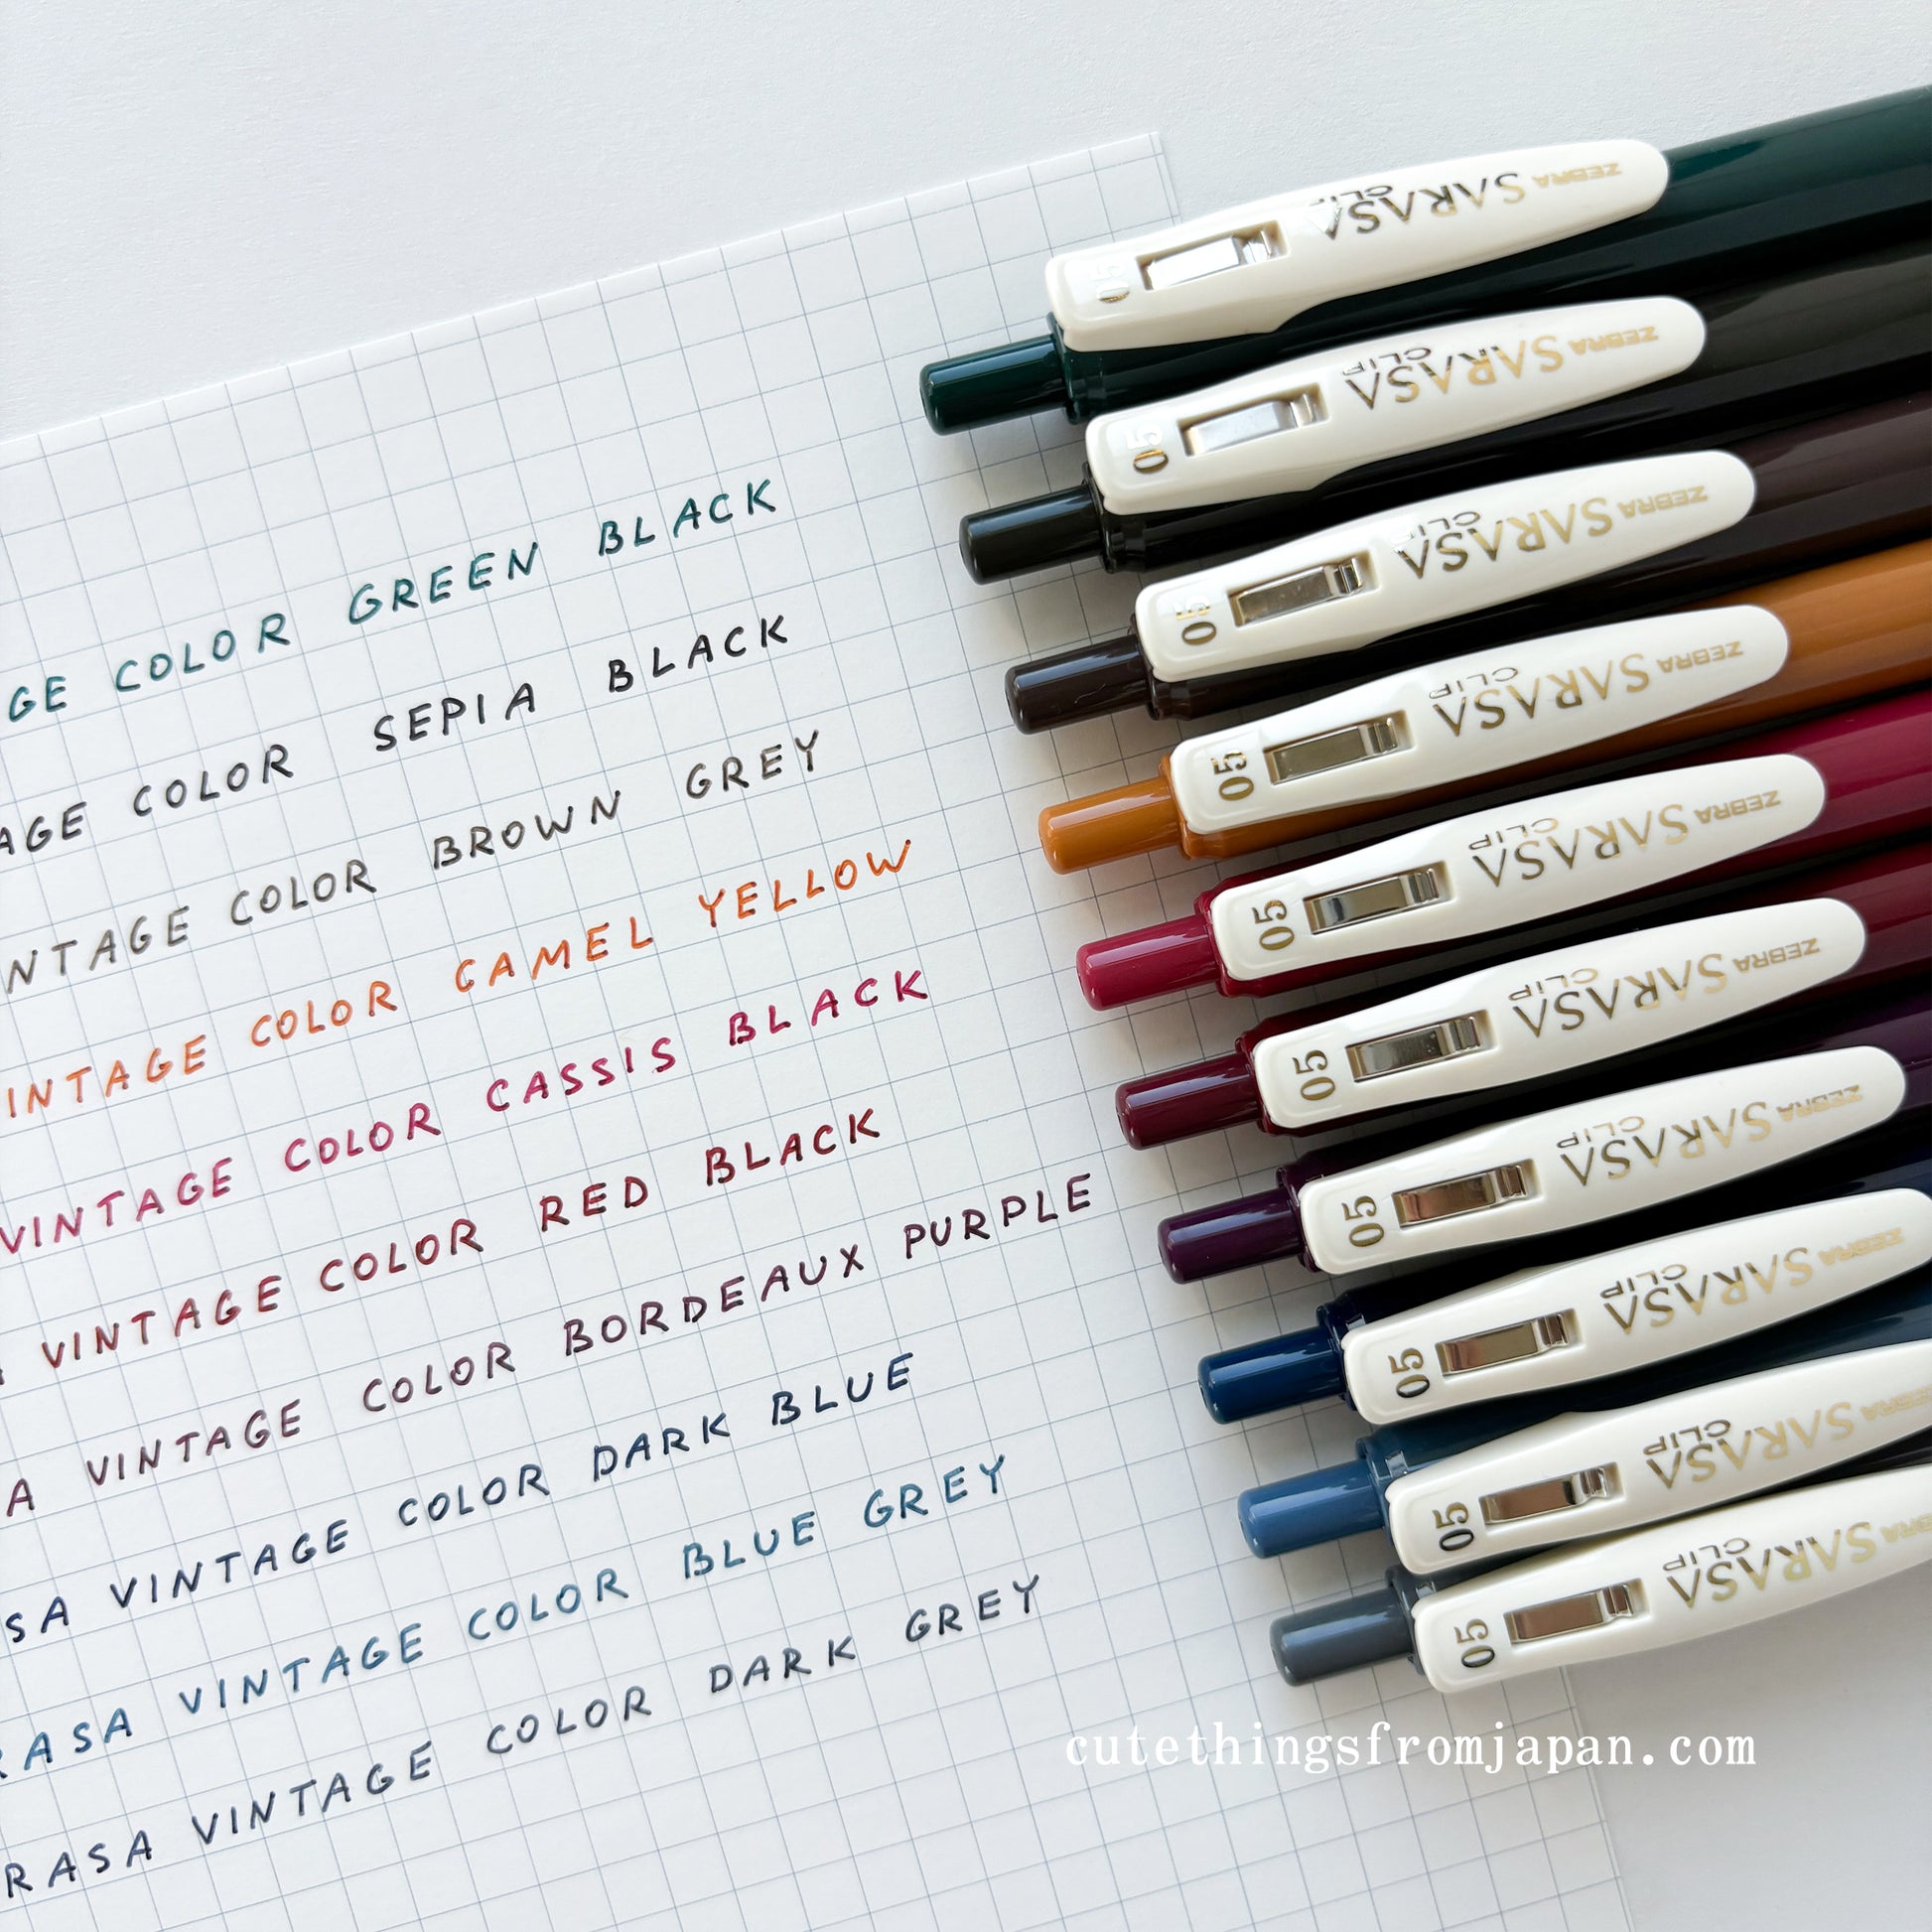 GE COLOR GREEN BLACK
AGE COLOR SEPIA BLACK
NTAGE COLOR BROWN GREY
INTAGE COLOR CAMEL YELLOW
VINTAGE COLOR CASSIS BLACK
VINTAGE COLOR RED BLACK
A VINTAGE COLOR BORDEAUX PURPLE
SA VINTAGE COLOR DARK BLUE
RASA VINTAGE COLOR BLUE GREY
RASA VINTAGE COLOR DARK GREY
05 SARASA CLIP ZEBRA
05 SARASA CLIP ZEBRA
05 SARASA CLIP ZEBRA
05 SARASA CLIP ZEBRA
05 SARASA CLIP ZEBRA
05 SARASA CLIP ZEBRA
05 SARASA CLIP ZEBRA
05 SARASA CLIP ZEBRA
05 SARASA CLIP ZEBRA
05 SARASA CLIP ZEBRA
cutethingsfromjapan.com